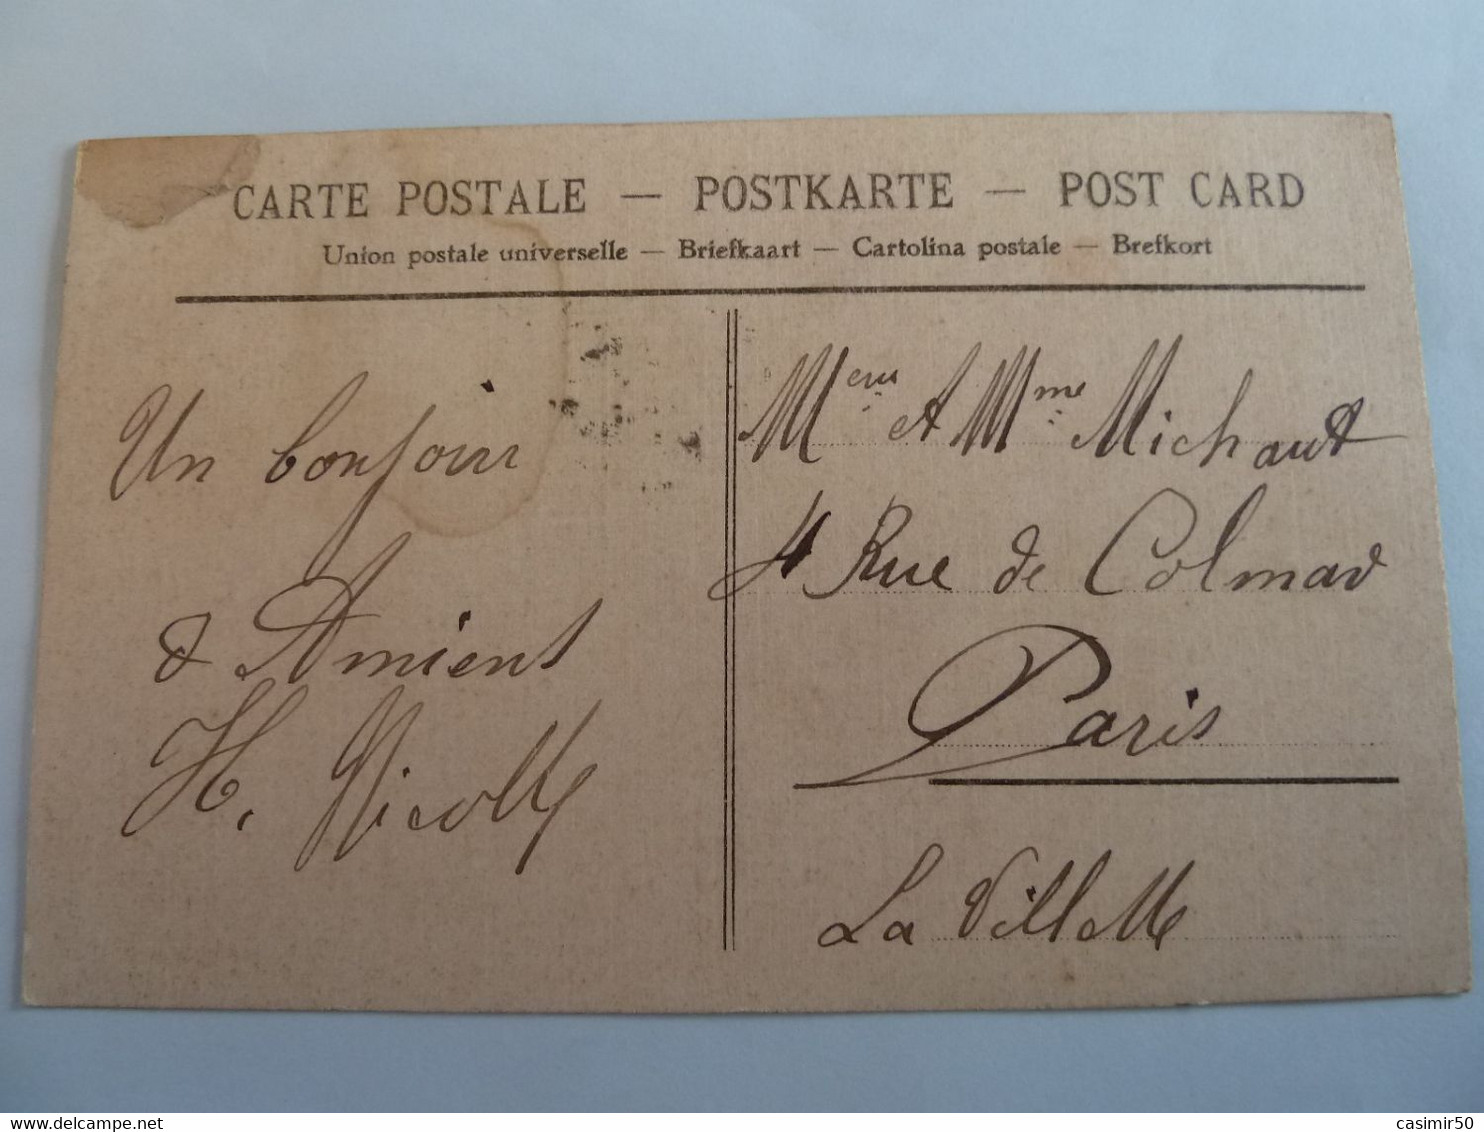 CARTE POSTALE — POSTKARTE — POST CARD
Union postale universelle — Briefkaart — Cartolina postale — Brefkort
Un bonjour
d Amiens
H. Nicolle
et Mme Michaut
4 Rue de Colmar
Paris
La Villette
www.delcampe.net
casimir50